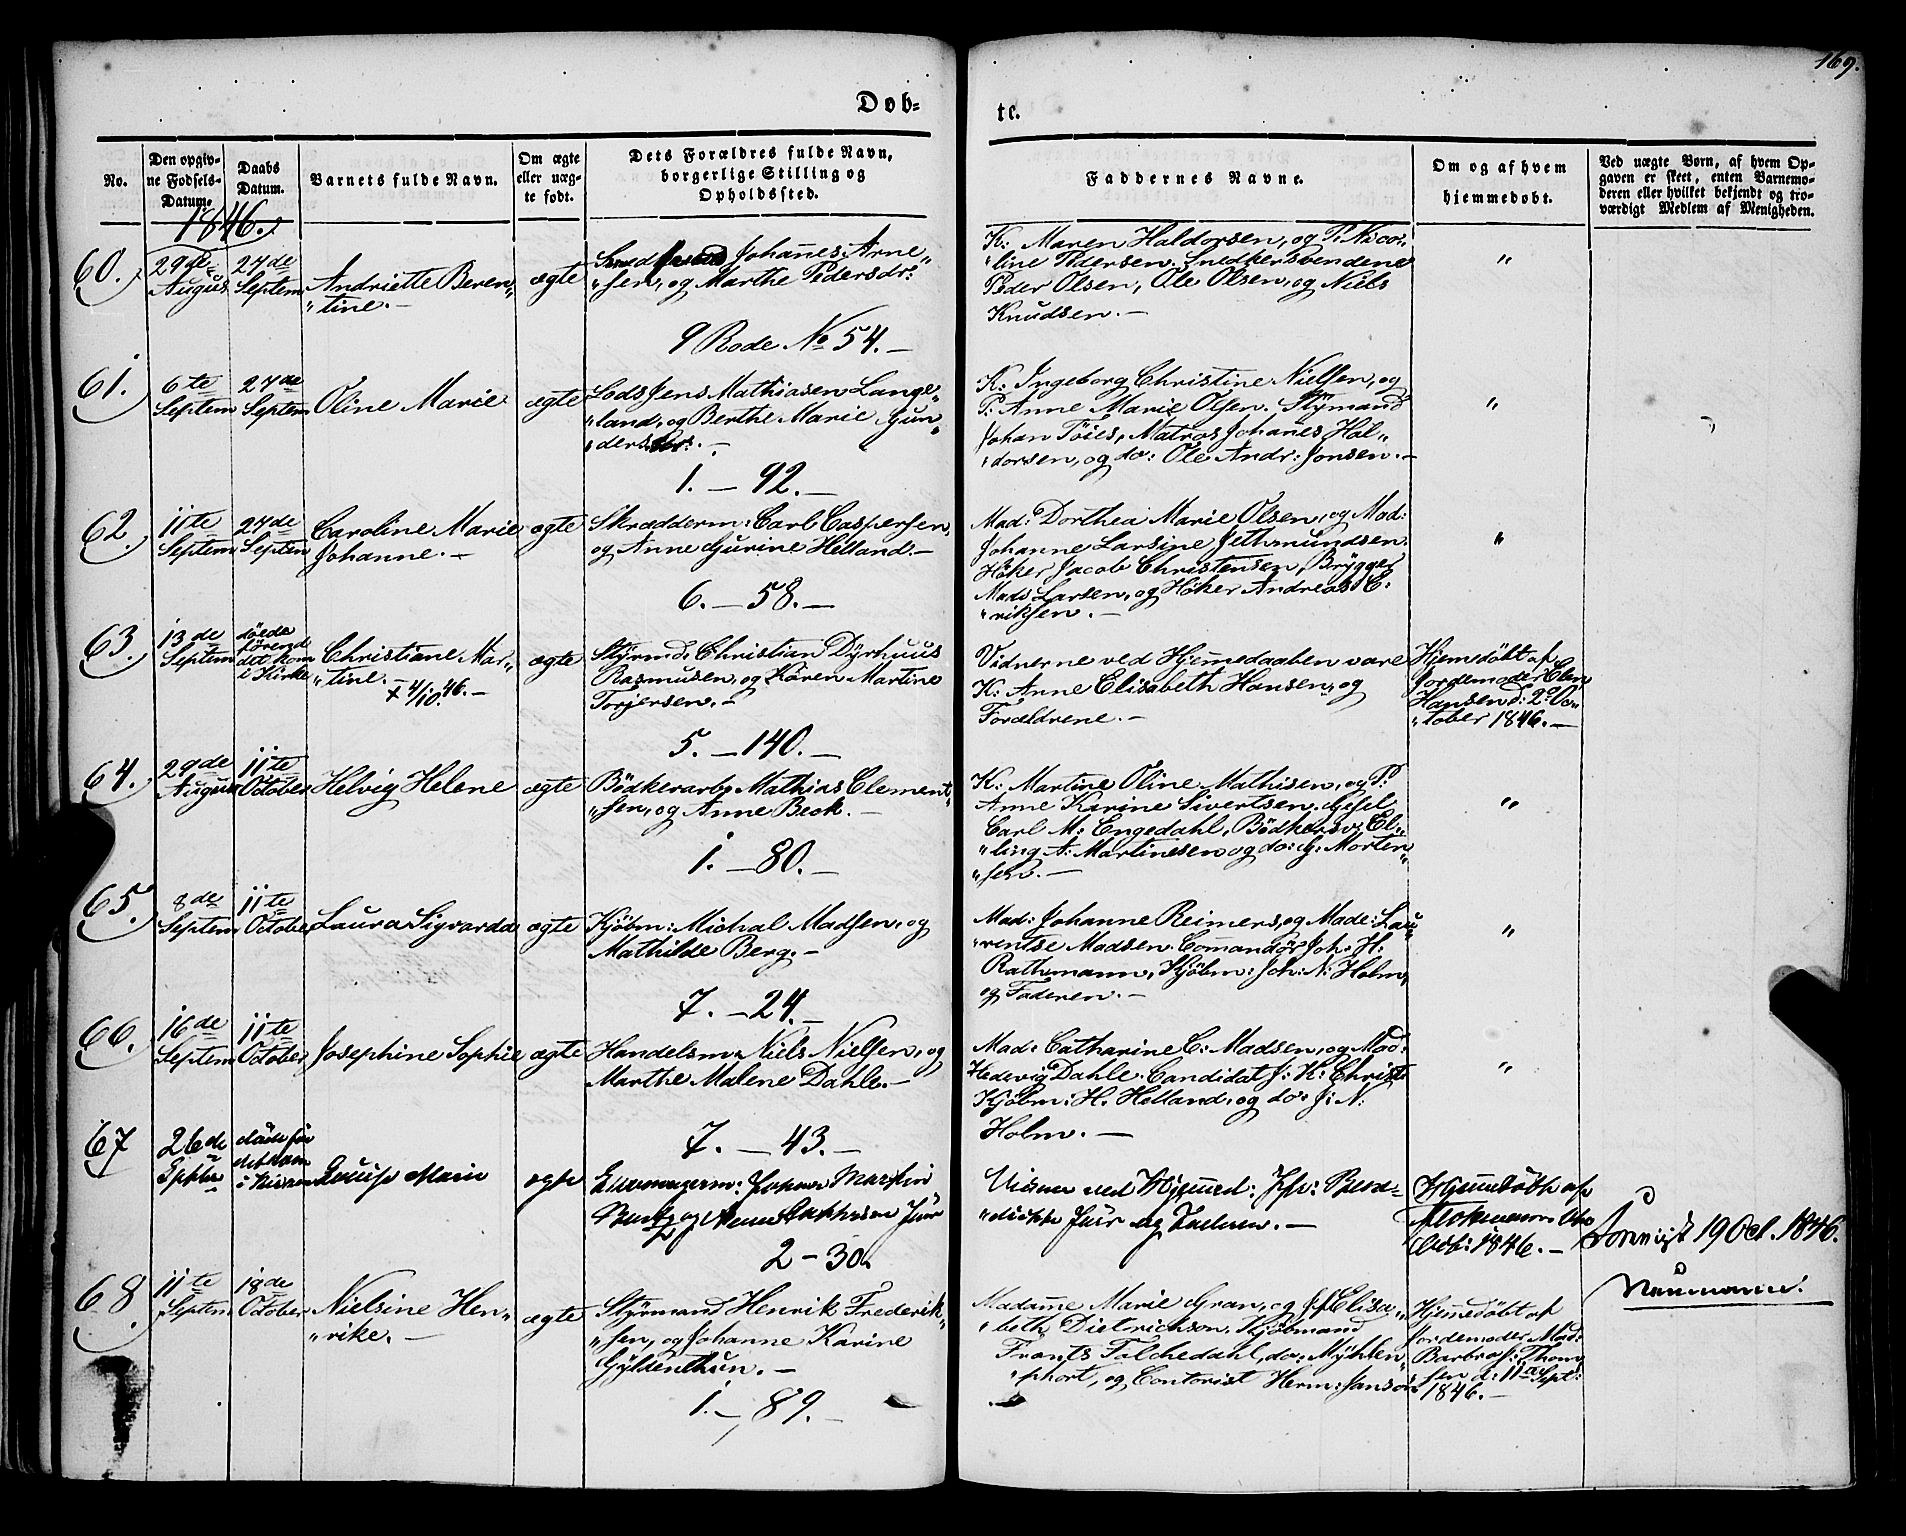 169.
Døb-
te.
No.
Den opgiv-
ne Fødsels-
Datum.
Daabs
Datum.
Barnets fulde Navn.
Om ægte
eller uæg-
te født.
Dets Forældres fulde Navn,
borgerlige Stilling og
Opholdssted.
Faddernes Navne.
Om og af hvem
hjemmedøbt.
Ved uægte Børn, af hvem Op-
gaven er skeet, enten Barnemo-
deren eller hvilket bekjendt og tro-
værdigt Medlem af Menigheden.
1846.
60.
29de
August
27de
Septem
Andriette Beren„
„tine.—
ægte
Johañes Arne„
„sen, og Marthe Pedersdr:
9 Rode No 54.—
K: Maren Haldorsen, og P: Nico„
„line Pedersen. Snedkersvendene
Peder Olsen, Ole Olsen, og Niels
Knudsen.—
„
61.
6te
Septem
27de
Septem
Oline Marie
ægte
Lods Jens Mathiasen Lange„
„land, og Berthe Marie Gun„
„dersdr:.—
1.—92.—
K: Ingeborg Christine Nielsen, og
P: Anne Marie Olsen. Stÿrmand
Johan Töies, Matros Johañes Hal„
„dorsen, og do: Ole Andr: Jonsen.—
„
62.
11te
Septem
27de
Septem
Caroline Marie
Johanne.—
ægte
Skrædderm: Carl Caspersen,
og Anne Gurine Helland.—
6.—58.—
Mad: Dorthea Marie Olsen, og Mad:
Johanne Larsine Jethmundsen.
Höker Jacob Christensen, Brÿgger
Mads Larsen, og Höker Andreas E„
„riksen.—
„
63.
13de
Septem
döede
förend
det kom
i Kirke
Christiane Mar„
„tine.—
+ 4/10.46.—
ægte
Stÿrmd: Christian Dÿrhuus
Rasmusen, og Karen Martine
Torjersen.—
5.—140.—
Vidnerne ved Hjemedaaben vare
K: Anne Elisabeth Hansen, og
Forældrene.—
Hjemedöbt af
Jordemoder Elen
Hansen d: 2 Oc„
„tober 1846.—
64.
29de
August
11te
October
Helvig Helene
ægte
Bödkerarb: Mathias Clement„
„sen, og Anne Beck.—
1.—80.—
K: Martine Oline Mathisen, og P:
Anne Karine Sivertsen. Gesel
Carl M: Engedahl, Bödkersv: El„
„ling A: Martinesen og do: G: Morten„
„sen.—
„
65.
8de
Septem
11te
October
Laura Sigvarda
ægte
Kjöbm: Michal Madsen, og
Mathilde Berg.—
7.—24.—
Mad: Johanne Reimers, og Made: Lau„
„rentse Madsen. Comandör Joh: H:
Rathmann, Kjöbm: Joh: N: Holm,
og Faderen.—
„
66.
16de
Septem
11te
October
Josephine Sophie
ægte
Handelsm: Niels Nielsen, og
Marthe Malene Dahle.—
7.—43.—
Mad: Catharine C: Madsen, og Mad:
Hedevig Dahle. Candidat J: K: Christi
Kjöbm: H. Helland, og do: J: N:
Holm.—
„
67
26de
Septbr
döde för
det kom
i Kirken
Louise Marie
ægte
Johan Martin
og Anne Jür
2—30.
Vidner ved Hjemmed: Jfr: Bene„
„dikte Jür og Faderen.—
Hjemmedöbt af
Octb: 1846.—
19 Oct. 1846.
Neumann.
68.
11te
Septem
18de
October
Nielsine Hen„
„rike.—
ægte
Stÿrmand Henrik Frederik„
„sen, og Johanne Karine
Gÿldenthun.—
1.—89.—
Madame Marie Gran, og Jf Elisa„
„beth Dietrichson, Kjöbmand
Frants Falchedahl, do: Mÿhlen„
„phort, og Contorist Herm: Janson
Hjemedöbt af
Jordemoder Mad:
Barbro J: Thom„
sen d: 11te Sept:
1846.—